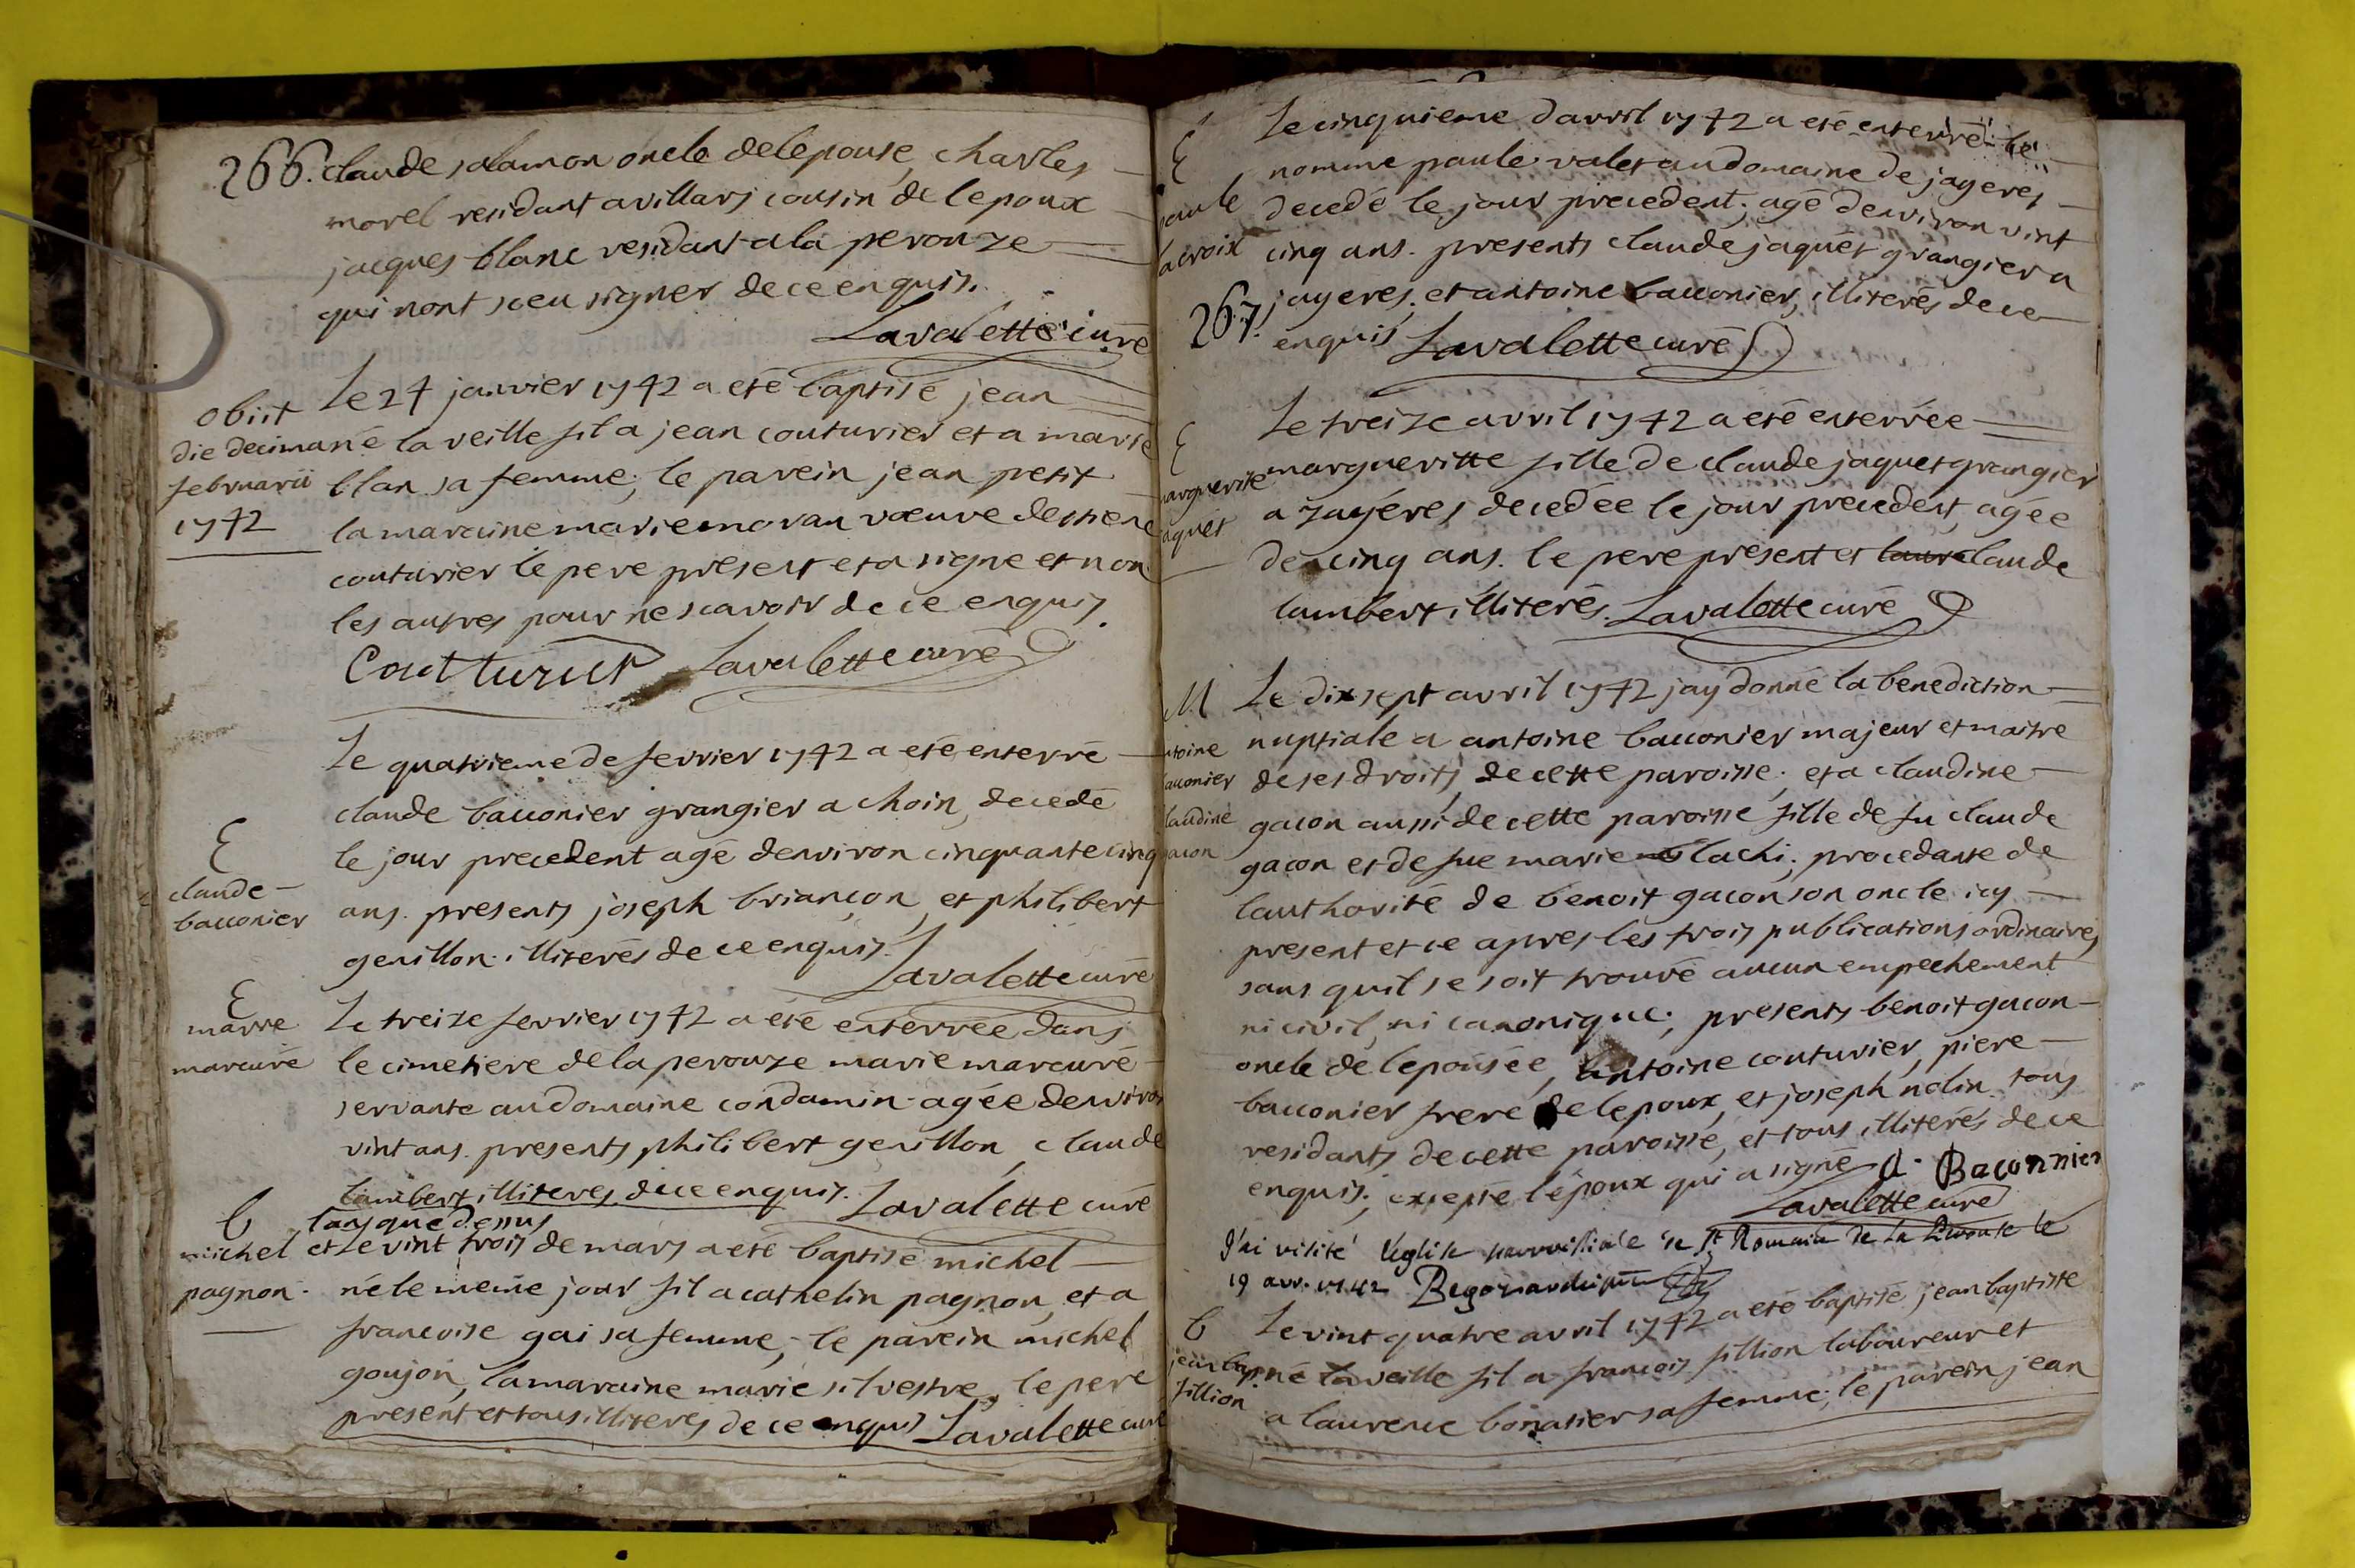 266. claude salamon oncle delepouse, charles
morel residant avillars cousin de lepoux
jacques blanc residant ala perouze
qui nont sceu signer dece enquis.
Lavalette curé
obiit
die decima
februarii
1742
Le 24 janvier 1742 a eté baptisé jean
né la veille fil a jean couturier et a marie
blan sa femme; le parein jean petit
la maraine marie moran vœuve
couturier le pere present et a signe et non
les autres pour ne scavoir de ce enquis.
Coutturier Lavalette curé
E
claude
bacconier
Le quatrieme de fevrier 1742 a eté enterré
claude bacconier grangier a choin, decedé
le jour precedent agé denviron cinquante cinq
ans. presents joseph briançon, et philibert
genillon. illiterés de ce enquis.
Lavalette curé
E
marie
marcuré
Le treize fevrier 1742 a eté enterrée dans
le cimetiere delaperouze marie marcuré
servante au domaine condamin agée denviron
vint ans. presents philibert genillon, claude
lambert illiteres, dece enquis. Lavalette curé
b
michel
pagnon.
lan que dessus
et le vint trois de mars a eté baptisé michel
né le meme jour fil a cathelin pagnon, et a
francoise gai sa femme, le parein michel
goujon, la maraine marie silvestre, le pere
present et tous illiteres de ce enquis Lavalette curé
E
paule
lacroix
Le cinquieme davril 1742 a eté enterré le
nomme paule valet au domaine de jayeres
decedé le jour precedent, agé denviron vint
cinq ans. presents claude jaquet grangier a
267. jayeres, et antoine bacconier, illiterés de ce
enquis Lavalette curé
E
marguerite
jaquet
Le treize avril 1742 a eté enterrée
margueritte fille de claude jaquet grangier
a jayéres decedée le jour precedent, agée
de cinq ans. le pere present et claude
lambert illiterés. Lavalette curé
M
antoine
bacconier
claudine
gacon
Le dix sept avril 1742 jay donné la benediction
nuptiale a antoine bacconier majeur et maitre
de ses droits, de cette paroisse, et a claudine
gacon aussi de cette paroisse fille de fu claude
gacon et de fue marie lachi, procedante de
lauthorité de benoit gacon son oncle icy
present et ce apres les trois publications ordinaires
sans quil se soit trouvé aucun empechement
ni civil, ni canonique, presents benoit gacon
oncle de lepousée, antoine couturier, piere
bacconier frere de lepoux, et joseph nolin tous
residants de cette paroisse, et tous illiterés de ce
enquis, excepté lépoux qui a signé a. Baconnier
Lavalette curé
J'ai visité léglise parroissiale de St Romain de La le
19 avr. 1742
b
jean bap
fillion
Le vint quatre avril 1742 a eté baptisé jean baptiste
né la veille fil a francois fillion laboureur et
a laurence bonatier sa femme, le parein jean